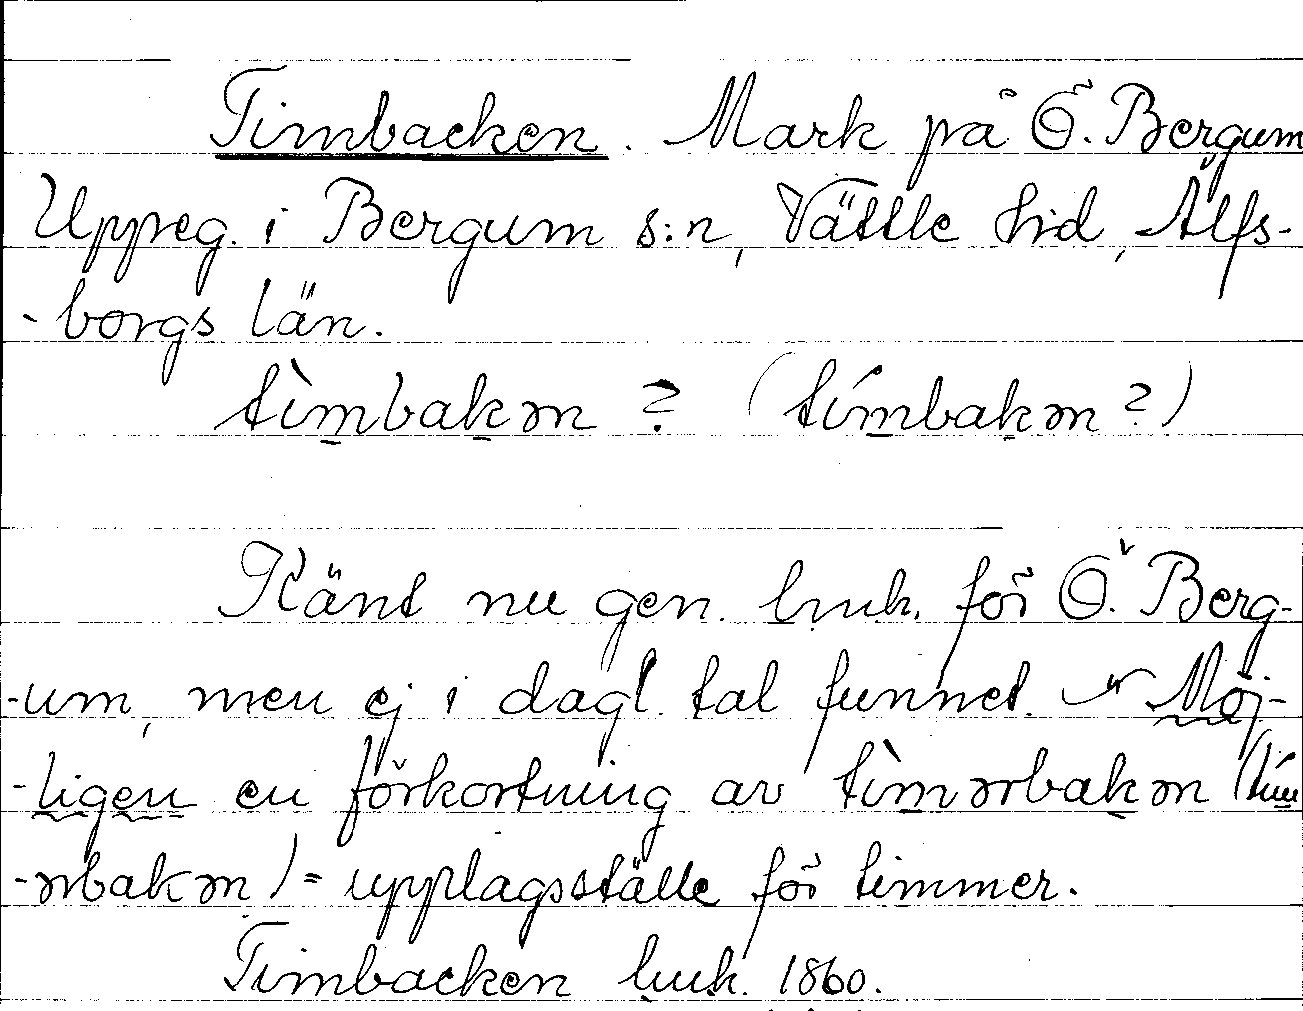 Timbacken. Mark på Ö. Bergum
Uppeg. i Bergum s:n, Vättle hd, Älfs-
-borgs län.
tìmbakən ? (tímbakən ?)
Känt nu gen. lmk. för Ö. Berg-
-um, men ej i dagl. tal funnet. Möj-
-ligen en förkortning av tìmərbakən (tím
-ərbakən) = upplagsställe för timmer.
Timbacken lmk. 1860.